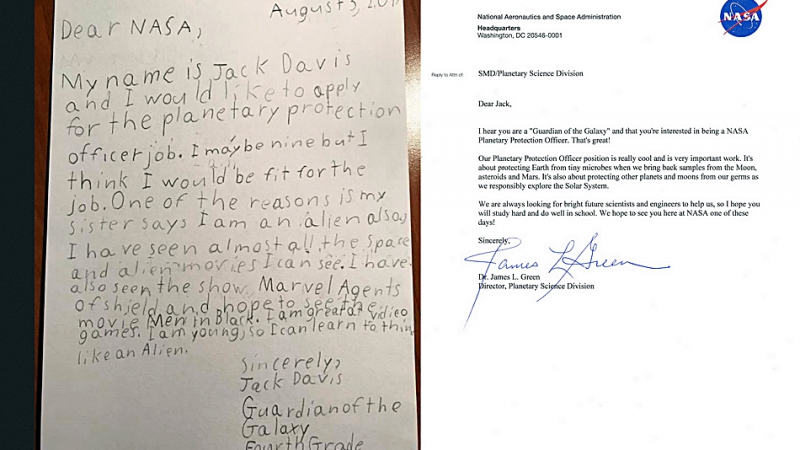 August 3, 2017
Dear NASA,
My name is Jack Davis
and I would like to apply
for the planetary protection
officer job. I may be nine but I
think I would be fit for the
job. One of the reasons is my
sister says I am an alien also,
I have seen almost all the space
and alien movies I can see. I have
also seen the show Marvel Agents
of shield and hope to see the
movie Men in Black. I am great at vidieo
games. I am young, so I can learn to think
like an Alien.
Sincerely,
Jack Davis
Guardian of the
Galaxy
Fourth Grade
National Aeronautics and Space Administration
Headquarters
Washington, DC 20546-0001
NASA
Reply to Attn of:
SMD/Planetary Science Division
Dear Jack,
I hear you are a "Guardian of the Galaxy" and that you're interested in being a NASA
Planetary Protection Officer. That's great!
Our Planetary Protection Officer position is really cool and is very important work. It's
about protecting Earth from tiny microbes when we bring back samples from the Moon,
asteroids and Mars. It's also about protecting other planets and moons from our germs as
we responsibly explore the Solar System.
We are always looking for bright future scientists and engineers to help us, so I hope
you will study hard and do well in school. We hope to see you here at NASA one of these
days!
Sincerely,
James L Green
Dr. James L. Green
Director, Planetary Science Division